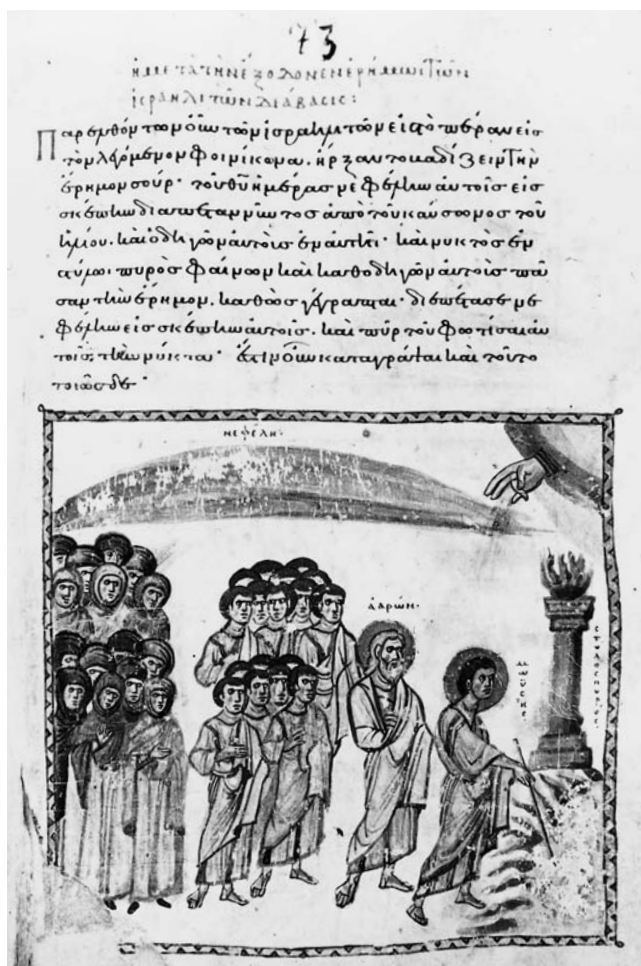 73
ἡ μετὰ τὴν ἔξοδον ἐν ἐρήμω τῶν
ἰσραηλιτῶν διάβασις:
Παρελθόντων οὖν τῶν ἰσραηλιτῶν εἰς τὸ πέραν εἰς
τὸν λεγόμενον φοινικῶνα, ἤρξαντο βαδίζειν τὴν
ἔρημον σούρ· τοῦ θυ ἡμέρας νεφέλην αὐτοῖς εἰς
σκέπην διαπεταννύντος ἀπὸ τοῦ καύσωνος τοῦ
ἡλίου, καὶ ὁδηγῶν αὐτοῖς ἐν αὐτῆ· καὶ νυκτὸς ἐν
στύλωι πυρὸς φαίνων καὶ καθοδηγῶν αὐτοῖς πᾶ
σαν τὴν ἔρημον, καθὼς γέγραπται· διεπέτασε νε
φέλην εἰς σκέπην αὐτοῖς, καὶ πῦρ τοῦ φωτίσαι αὐ
τοῖς τὴν νύκτα· ἔστιν οὖν καταγράψαι καὶ τοῦτο
τοιῶσδε·
ΝΕΦΕΛΗ·
ΑΑΡΩΝ·
ΜΩΥΣΗΣ·
ΣΤΥΛΟΣ ΠΥΡΟΣ·